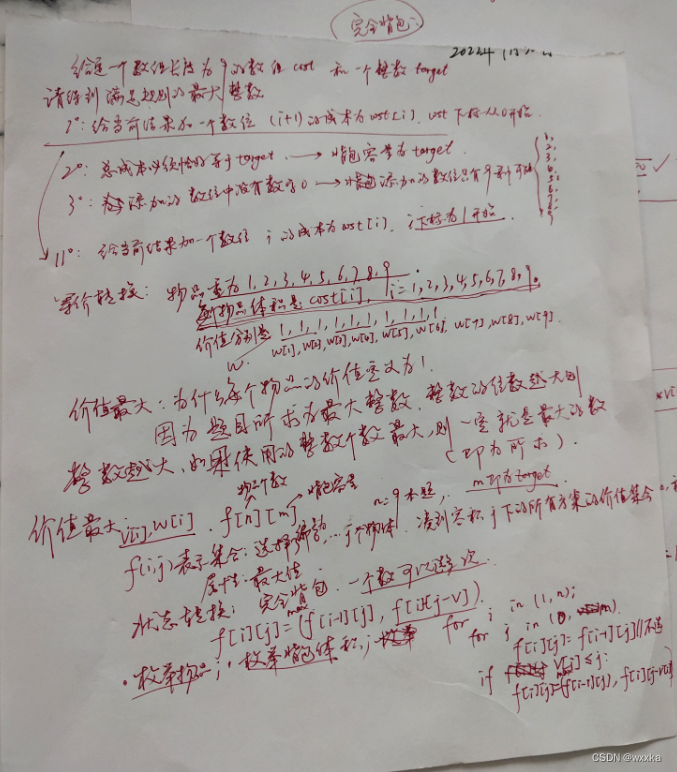 完全背包:
给定一个数组长度为9的数组 cost 和一个整数 target
请得到满足规则的最大整数
1°: 给当前结果加一个数位 (i+1) 的成本为 cost[i]. cost 下标从0开始.
2°: 总成本必须恰好等于 target. → 背包容量为 target.
3°: 添加的数位中没有数字0 → 背包添加的数位只有9种
1,
2,
3,
4,
5,
6,
7,
8,
9
11°: 给当前结果加一个数位 i 的成本为 cost[i]. i下标为1开始.
等价转换: 物品重为 1,2,3,4,5,6,7,8,9
每物品体积是 cost[i], i=1,2,3,4,5,6,7,8,9.
价值分别是 1,1,1,1,1,1,1,1,1
w. w[1],w[2],w[3],w[4],w[5],w[6],w[7],w[8],w[9].
价值最大: 为什么每个物品的价值定义为1.
因为题目所求为最大整数. 整数的位数越大则
整数越大, 如果使用的整数个数最大, 则一定就是最大的数
(即为所求).
物品个数
→背包容量
n=9本题, m即为target.
价值最大: v[i],w[i]. f[n][m]
f(i,j)表示集合: 选择 凑到容积j下的所有方案的价值集合
属性: 最大值
状态转换: 完全背包. 一个数可以选多次.
f[i][j]=max(f[i-1][j], f[i][j-v])
for i in (1,n):
for j in (0, m)
·枚举物品i ·枚举背包体积j
f[i][j]=f[i-1][j]//不选
if v[i]≤j:
f[i][j]=max(f[i-1][j], f[i][j-v[i]])
CSDN @wxxka